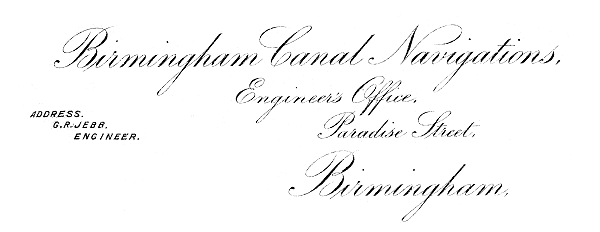 Birmingham Canal Navigations,
Engineer's Office,
Paradise Street,
Birmingham,
ADDRESS.
G.R. JEBB,
ENGINEER.